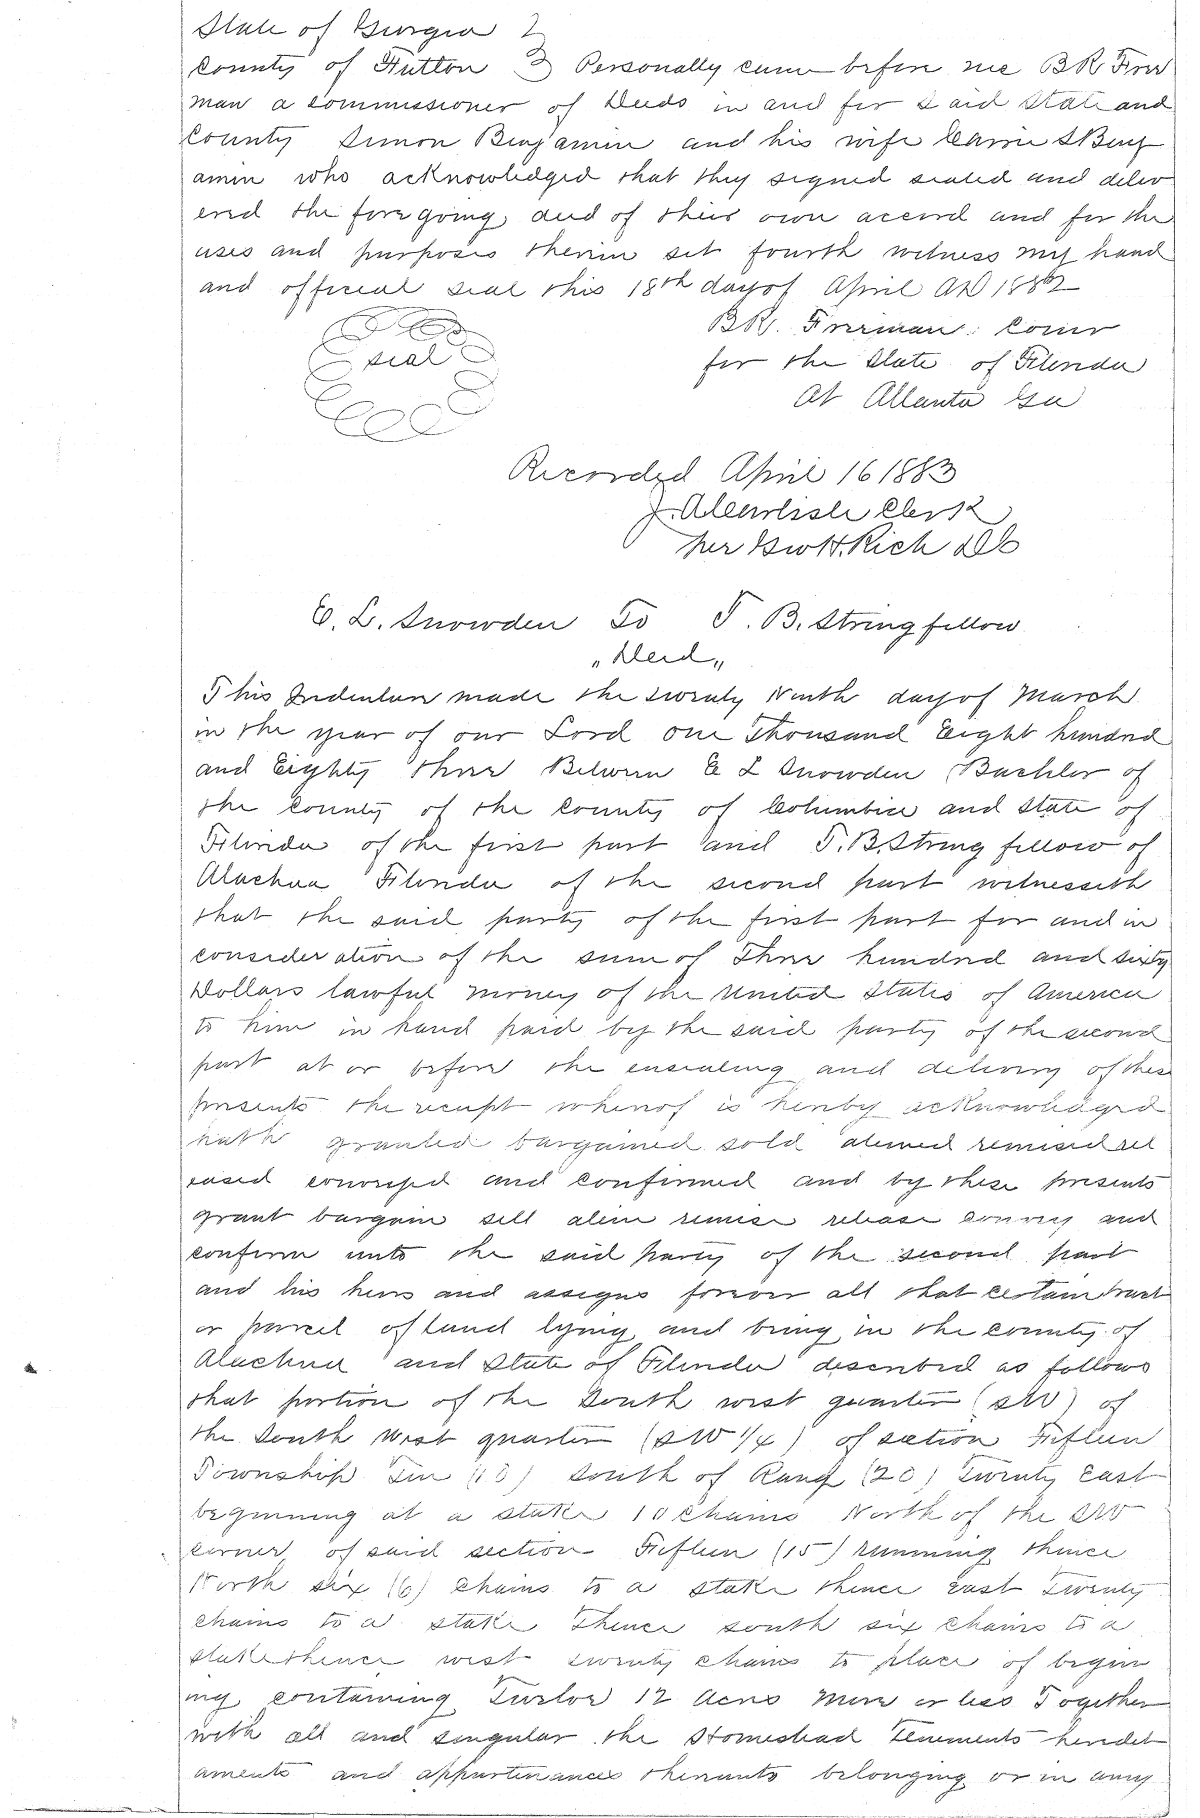 State of Georgia
County of Fulton } Personally came before me B R Free
man a commissioner of Deeds in and for said State and
County Simon Benjamin and his wife Carrie S Benj
amin who acknowledged that they signed sealed and deliv
ered the foregoing deed of their own accord and for the
uses and purposes therein set fourth witness my hand
and official seal this 18th day of April AD 1882
B R. Freeman Comr
seal
for the State of Florida
At Atlanta Ga
Recorded April 16 1883
J. A Carlisle Clerk
per Geo H. Rich D C
E. L. Snowden To T. B. Stringfellow
"Deed"
This Indenture made the twenty Ninth day of March
in the year of our Lord one Thousand Eight hundred
and Eighty three Between E L Snowden Bachler of
the County of the County of Columbia and State of
Florida of the first part and T. B. Stringfellow of
Alachua Florida of the second part witnesseth
that the said party of the first part for and in
consideration of the sum of Three hundred and sixty
Dollars lawful money of the United States of America
to him in hand paid by the said party of the second
part at or before the ensealing and delivery of these
presents the receipt whereof is hereby acknowledged
hath granted bargained sold aliened remised rel
eased conveyed and confirmed and by these presents
grant bargain sell alien remise release convey and
confirm unto the said party of the second part
and his heirs and assigns forever all that certain tract
or parcel of land lying and being in the county of
Alachua and State of Florida described as follows
that portion of the South west quarter (SW) of
the South West quarter (SW 1/4) of section Fifteen
Township Ten (10) South of Rang (20) Twenty East
beginning at a stake 10 Chains North of the SW
corner of said section Fifteen (15) running thence
North six (6) Chains to a stake thence East Twenty
chains to a stake Thence south six chains to a
stake thence west twenty chains to place of begin
ing containing Twelve 12 Acres More or less Together
with all and singular the Homestead Tenements heredit
aments and appurtenances thereunto belonging or in any